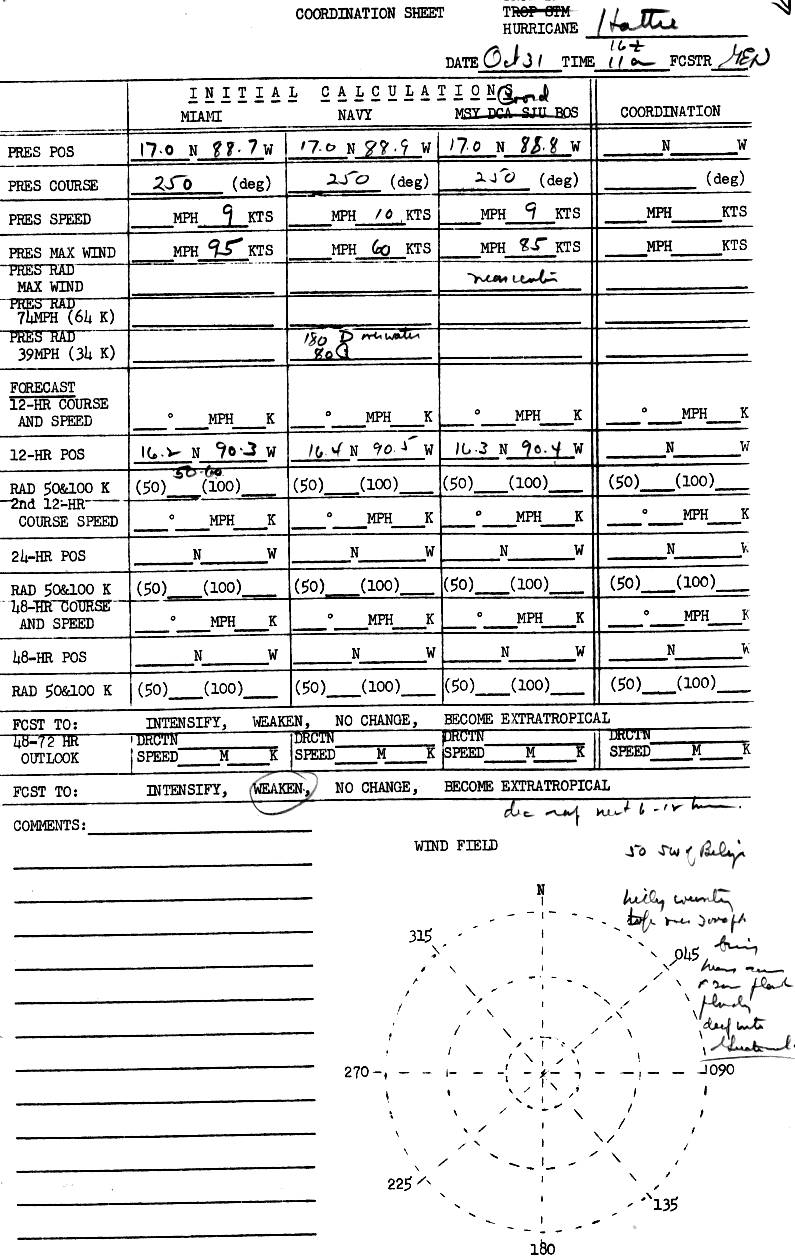 COORDINATION SHEET
TROP STM
HURRICANE Hattie
16z
DATE Oct 31 TIME 11a FCSTR
INITIAL CALCULATIONS Coord
MIAMI NAVY MSY DCA SJU BOS COORDINATION
PRES POS 17.0 N 88.7 W 17.0 N 88.9 W 17.0 N 88.8 W N W
PRES COURSE 250 (deg) 250 (deg) 250 (deg) (deg)
PRES SPEED MPH 9 KTS MPH 10 KTS MPH 9 KTS MPH KTS
PRES MAX WIND MPH 95 KTS MPH 60 KTS MPH 85 KTS MPH KTS
PRES RAD
MAX WIND near center
PRES RAD
74MPH (64 K)
PRES RAD 180 over water
39MPH (34 K) 80
FORECAST
12-HR COURSE
AND SPEED ° MPH K ° MPH K ° MPH K ° MPH K
12-HR POS 16.2 N 90.3 W 16.4 N 90.5 W 16.3 N 90.4 W N W
50-60
RAD 50&100 K (50) (100) (50) (100) (50) (100) (50) (100)
2nd 12-HR
COURSE SPEED ° MPH K ° MPH K ° MPH K ° MPH K
24-HR POS N W N W N W N W
RAD 50&100 K (50) (100) (50) (100) (50) (100) (50) (100)
48-HR COURSE
AND SPEED ° MPH K ° MPH K ° MPH K ° MPH K
48-HR POS N W N W N W N W
RAD 50&100 K (50) (100) (50) (100) (50) (100) (50) (100)
FCST TO: INTENSIFY, WEAKEN, NO CHANGE, BECOME EXTRATROPICAL
48-72 HR DRCTN DRCTN DRCTN DRCTN
OUTLOOK SPEED M K SPEED M K SPEED M K SPEED M K
FCST TO: INTENSIFY, WEAKEN, NO CHANGE, BECOME EXTRATROPICAL
next 6-12
COMMENTS:
WIND FIELD
50 SW of Belize
N
hilly country
315
over
045
deep into
Guatemala
270
090
225
135
180